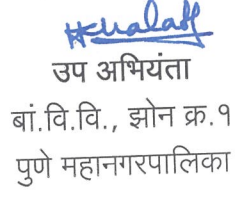 उप अभियंता
बां.वि.वि., झोन क्र.१
पुणे महानगरपालिका